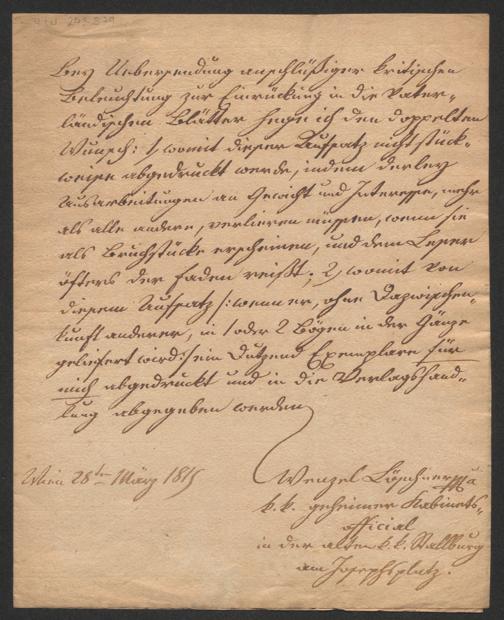 Bey Uebersendung anschlüßiger kritischen
Beleuchtung zur Einrückung in die Vater-
ländischen Blätter hege ich den doppelten
Wunsch: 1) womit dieser Aufsatz nicht stück-
weise abgedruckt werde, indem derley
Ausarbeitungen an Gewicht und Interesse, mehr
als alle andere, verlieren müssen, wenn sie
als Bruchstücke erscheinen, und dem Leser
öfters der Faden reißt; 2) womit von
diesem Aufsatz /: wenn er, ohne Dazwischen-
kunft anderer, in 1 oder 2 Bögen in der Gänze
geliefert wird :/ ein Dutzend Exemplare für
mich abgedruckt und in die Verlagshand-
lung abgegeben werden
Wien 28ten März 1815
Wenzel Löschner
k. k. geheimer Kabinets-
official
in der alten k. k. Stallburg
am Josephsplatz.